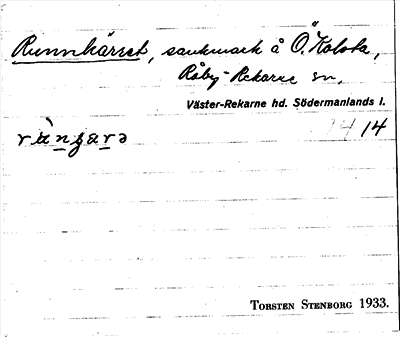 Runnkärret, sankmark å Ö. Kolsta,
Råby-Rekarne sn,
Väster-Rekarne hd. Södermanlands l.
14 14
TORSTEN STENBORG 1933.